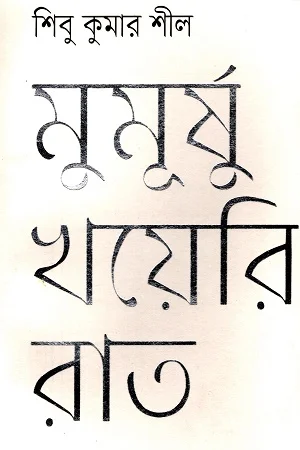 শিবু কুমার শীল
মুমূর্ষু
খয়েরি
রাত